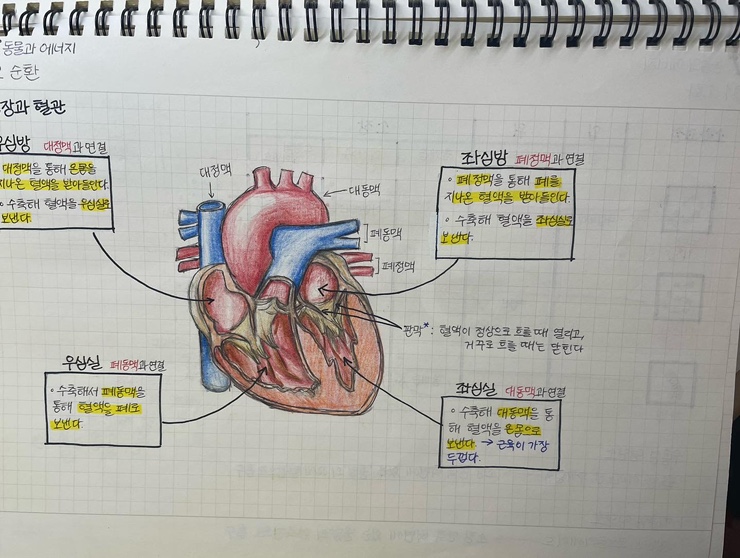 동물과 에너지
순환
장과 혈관
우심방 대정맥과 연결
대정맥을 통해 온몸을
지나온 혈액을 받아들인다.
• 수축해 혈액을 우심실로
보낸다.
대정맥
대동맥
폐동맥
폐정맥
좌심방 폐정맥과 연결
• 폐정맥을 통해 폐를
지나온 혈액을 받아들인다.
• 수축해 혈액을 좌심실로
보낸다.
판막*: 혈액이 정상으로 흐를 때 열리고,
거꾸로 흐를 때는 닫힌다
우심실 폐동맥과 연결
• 수축해서 폐동맥을
통해 혈액을 폐로
보낸다.
좌심실 대동맥과 연결
• 수축해 대동맥을 통
해 혈액을 온몸으로
보낸다. → 근육이 가장
두껍다.